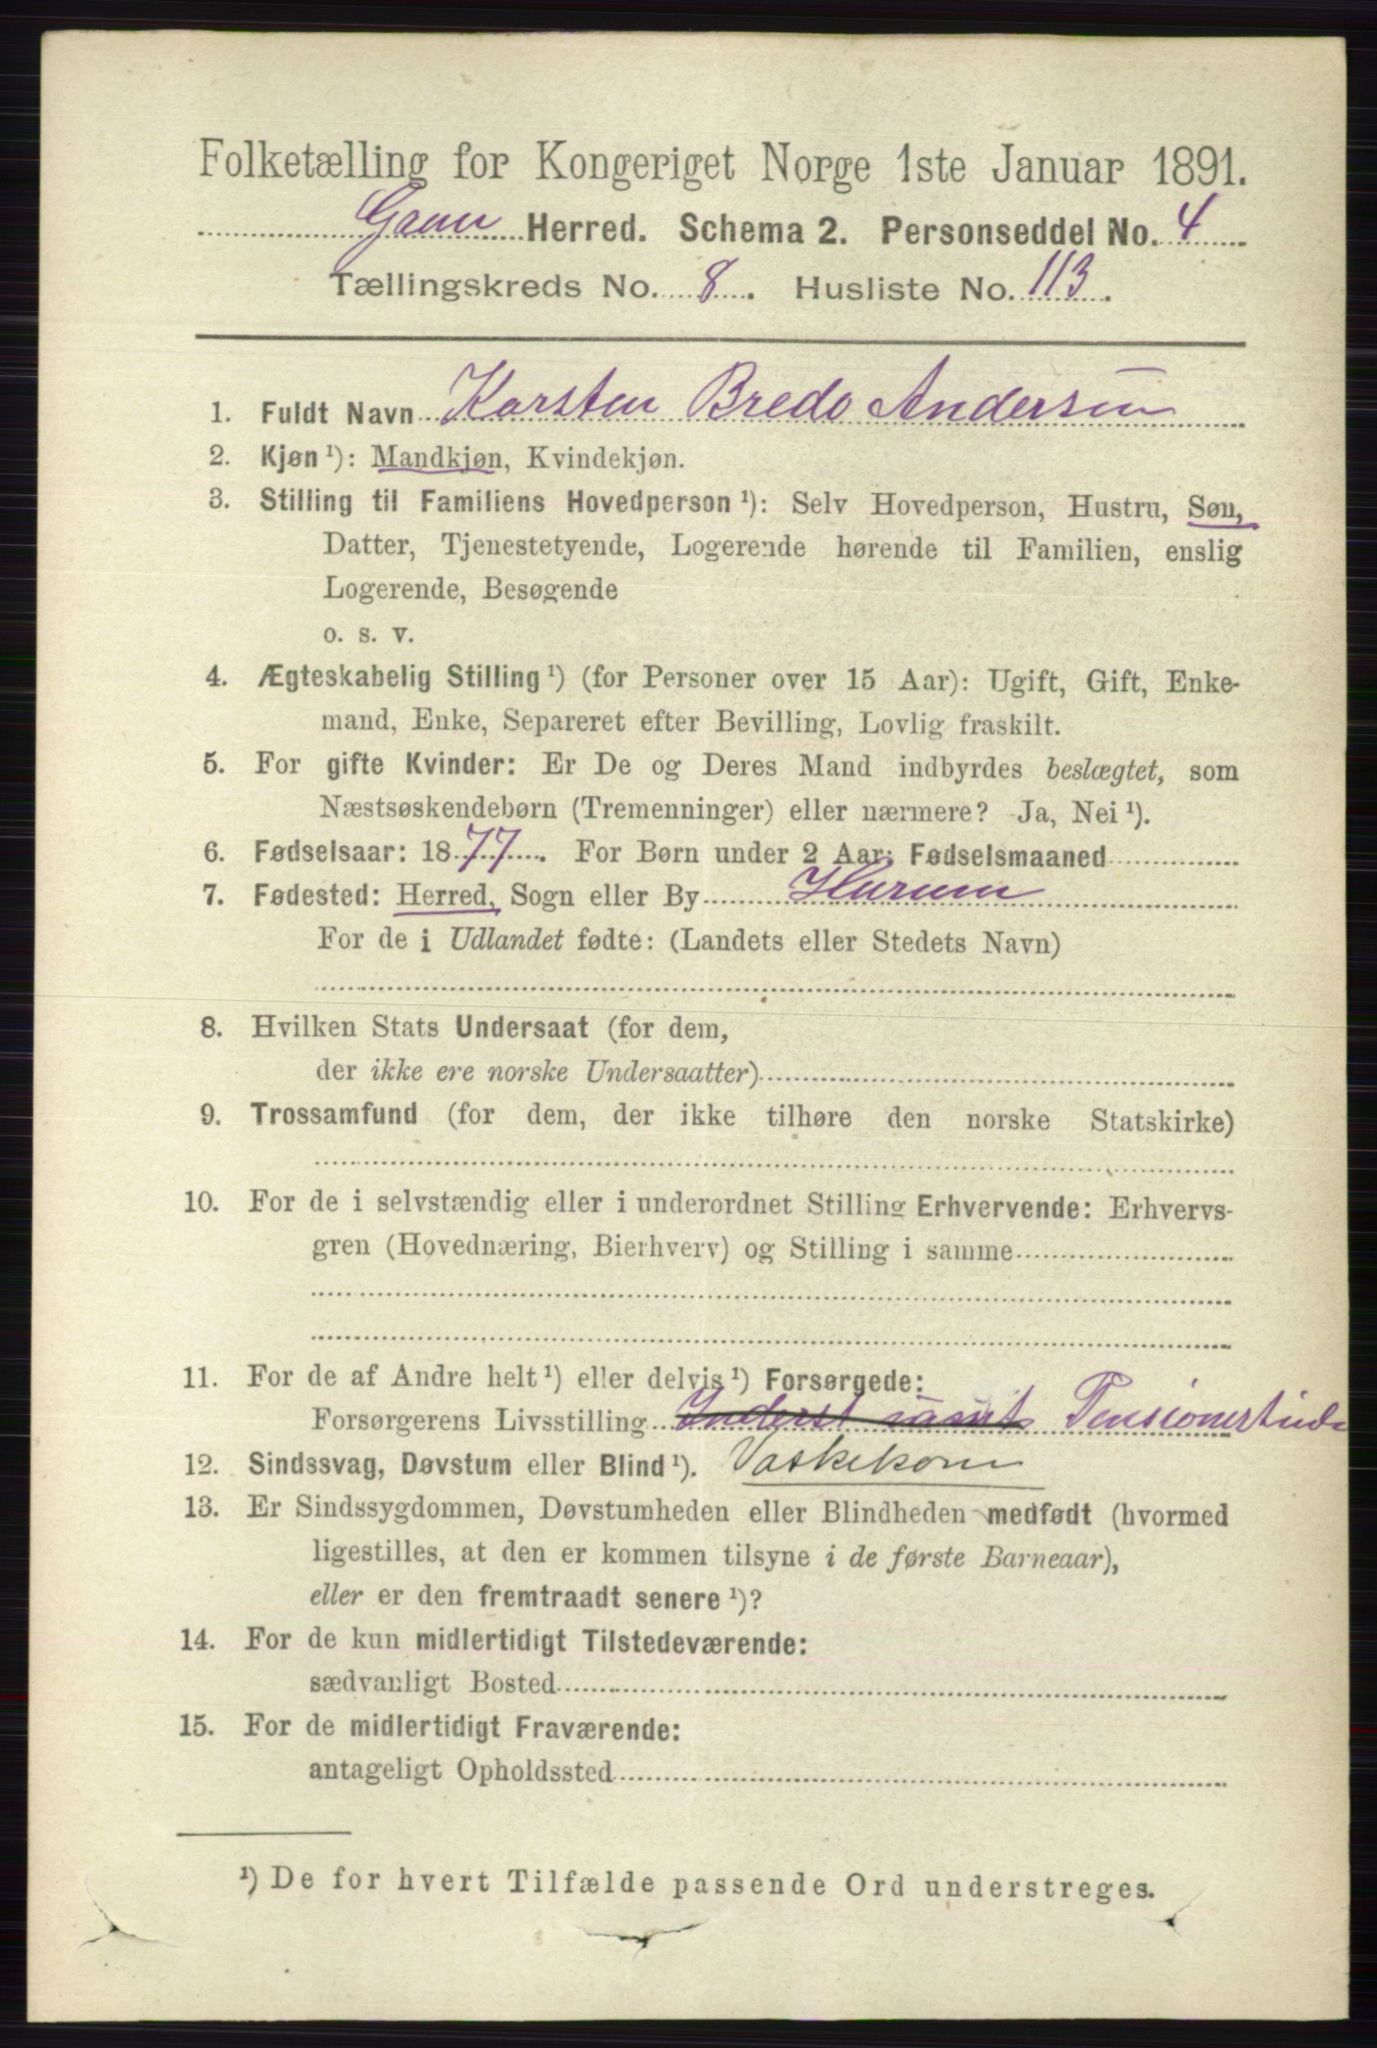 Folketælling for Kongeriget Norge 1ste Januar 1891.
Gran Herred. Schema 2. Personseddel No. 4
Tællingskreds No. 8. Husliste No. 113.
1. Fuldt Navn Karsten Bredo Andersen
2. Kjøn ¹): Mandkjøn, Kvindekjøn.
3. Stilling til Familiens Hovedperson ¹): Selv Hovedperson, Hustru, Søn,
Datter, Tjenestetyende, Logerende hørende til Familien, enslig
Logerende, Besøgende
o. s. v.
4. Ægteskabelig Stilling ¹) (for Personer over 15 Aar): Ugift, Gift, Enke-
mand, Enke, Separeret efter Bevilling, Lovlig fraskilt.
5. For gifte Kvinder: Er De og Deres Mand indbyrdes beslægtet, som
Næstsøskendebørn (Tremenninger) eller nærmere? Ja, Nei ¹).
6. Fødselsaar: 1877. For Børn under 2 Aar: Fødselsmaaned
7. Fødested: Herred, Sogn eller By Hurum
For de i Udlandet fødte: (Landets eller Stedets Navn)
8. Hvilken Stats Undersaat (for dem,
der ikke ere norske Undersaatter)
9. Trossamfund (for dem, der ikke tilhøre den norske Statskirke)
10. For de i selvstændig eller i underordnet Stilling Erhvervende: Erhvervs-
gren (Hovednæring, Bierhverv) og Stilling i samme
11. For de af Andre helt ¹) eller delvis ¹) Forsørgede:
Forsørgerens Livsstilling Inderst samt Pensionistinde
12. Sindssvag, Døvstum eller Blind ¹). Vaskekone
13. Er Sindssygdommen, Døvstumheden eller Blindheden medfødt (hvormed
ligestilles, at den er kommen tilsyne i de første Barneaar),
eller er den fremtraadt senere ¹)?
14. For de kun midlertidigt Tilstedeværende:
sædvanligt Bosted
15. For de midlertidigt Fraværende:
antageligt Opholdssted
¹) De for hvert Tilfælde passende Ord understreges.